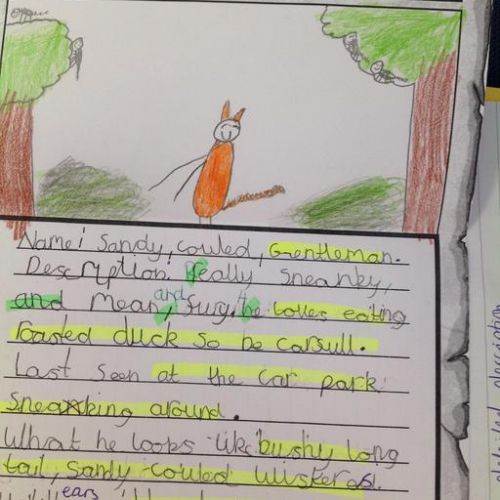 Name! Sandy, couled, Grentleman.
Description. Really sneanky,
and mean, and fury. he loves eating
roasted duck so be carsull.
Last seen at the car park
sneaking around.
What he loops like bushy long
tail, Sandy couled wiskers.
ears